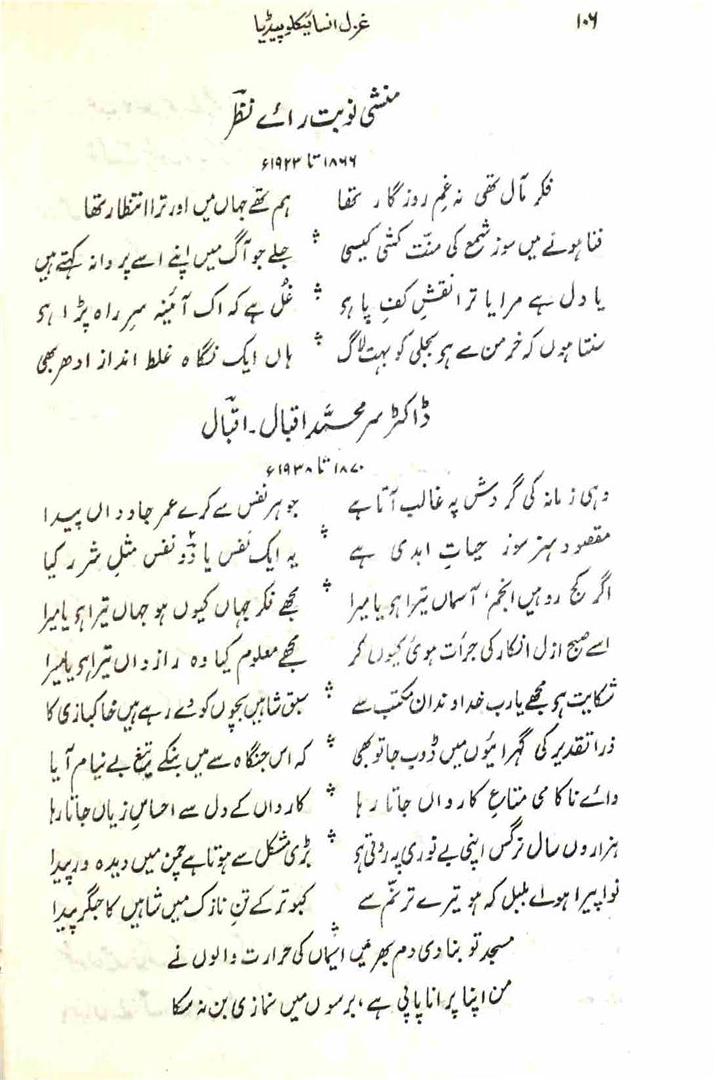 ۱۰۶ غزل انسائیکلوپیڈیا
منشی نوبت رائے نظرؔ
۱۸۶۶ تا ۱۹۲۳ء
فکر مآل تھی نہ غم روزگار تھا ہم تھے جہاں میں اور ترا انتظار تھا
فنا ہونے میں سوز شمع کی منّت کشی کیسی جلے جو آگ میں اپنے اسے پروانہ کہتے ہیں
یا دل ہے مرا یا ترا نقشِ کفِ پا ہو غُل ہے کہ اک آئینہ سرِ راہ پڑا ہو
سنتا ہوں کہ خرمن سے ہو بجلی کو بہت لاگ ہاں ایک نگاہ غلط انداز ادھر بھی
ڈاکٹر سر محمّد اقبال۔ اقبالؔ
۱۸۷۰ تا ۱۹۳۸ء
وہی زمانہ کی گردش پہ غالب آتا ہے جو ہر نفس سے کرے عمر جاوداں پیدا
مقصود ہنر سوز حیاتِ ابدی ہے یہ ایک نَفس یا دو نفس مثلِ شرر کیا
اگر کج رو ہیں انجم، آسماں تیرا ہو یا میرا مجھے فکر جہاں کیوں ہو جہاں تیرا ہو یا میرا
اسے صبح ازل انکار کی جرأت ہوئی کیوں کر مجھے معلوم کیا وہ رازداں تیرا ہو یا میرا
شکایت ہو مجھے یارب خداوندان مکتب سے سبق شاہیں بچوں کو دے رہے ہیں خاکبازی کا
ذرا تقدیر کی گہرائیوں میں ڈوب جا تو بھی کہ اس جنگاہ سے میں بنکے تیغِ بے نیام آیا
وائے ناکامی متاعِ کارواں جاتا رہا کارواں کے دل سے احساسِ زیاں جاتا رہا
ہزاروں سال نرگس اپنی بے نوری پہ روتی ہو بڑی مشکل سے ہوتا ہے چمن میں دیدہ ور پیدا
نوا پیرا ہو اے بلبل کہ ہو تیرے ترنّم سے کبوتر کے تنِ نازک میں شاہیں کا جگر پیدا
مسجد تو بنا دی دم بھر میں ایماں کی حرارت والوں نے
من اپنا پرانا پاپی ہے، برسوں میں نمازی بن نہ سکا